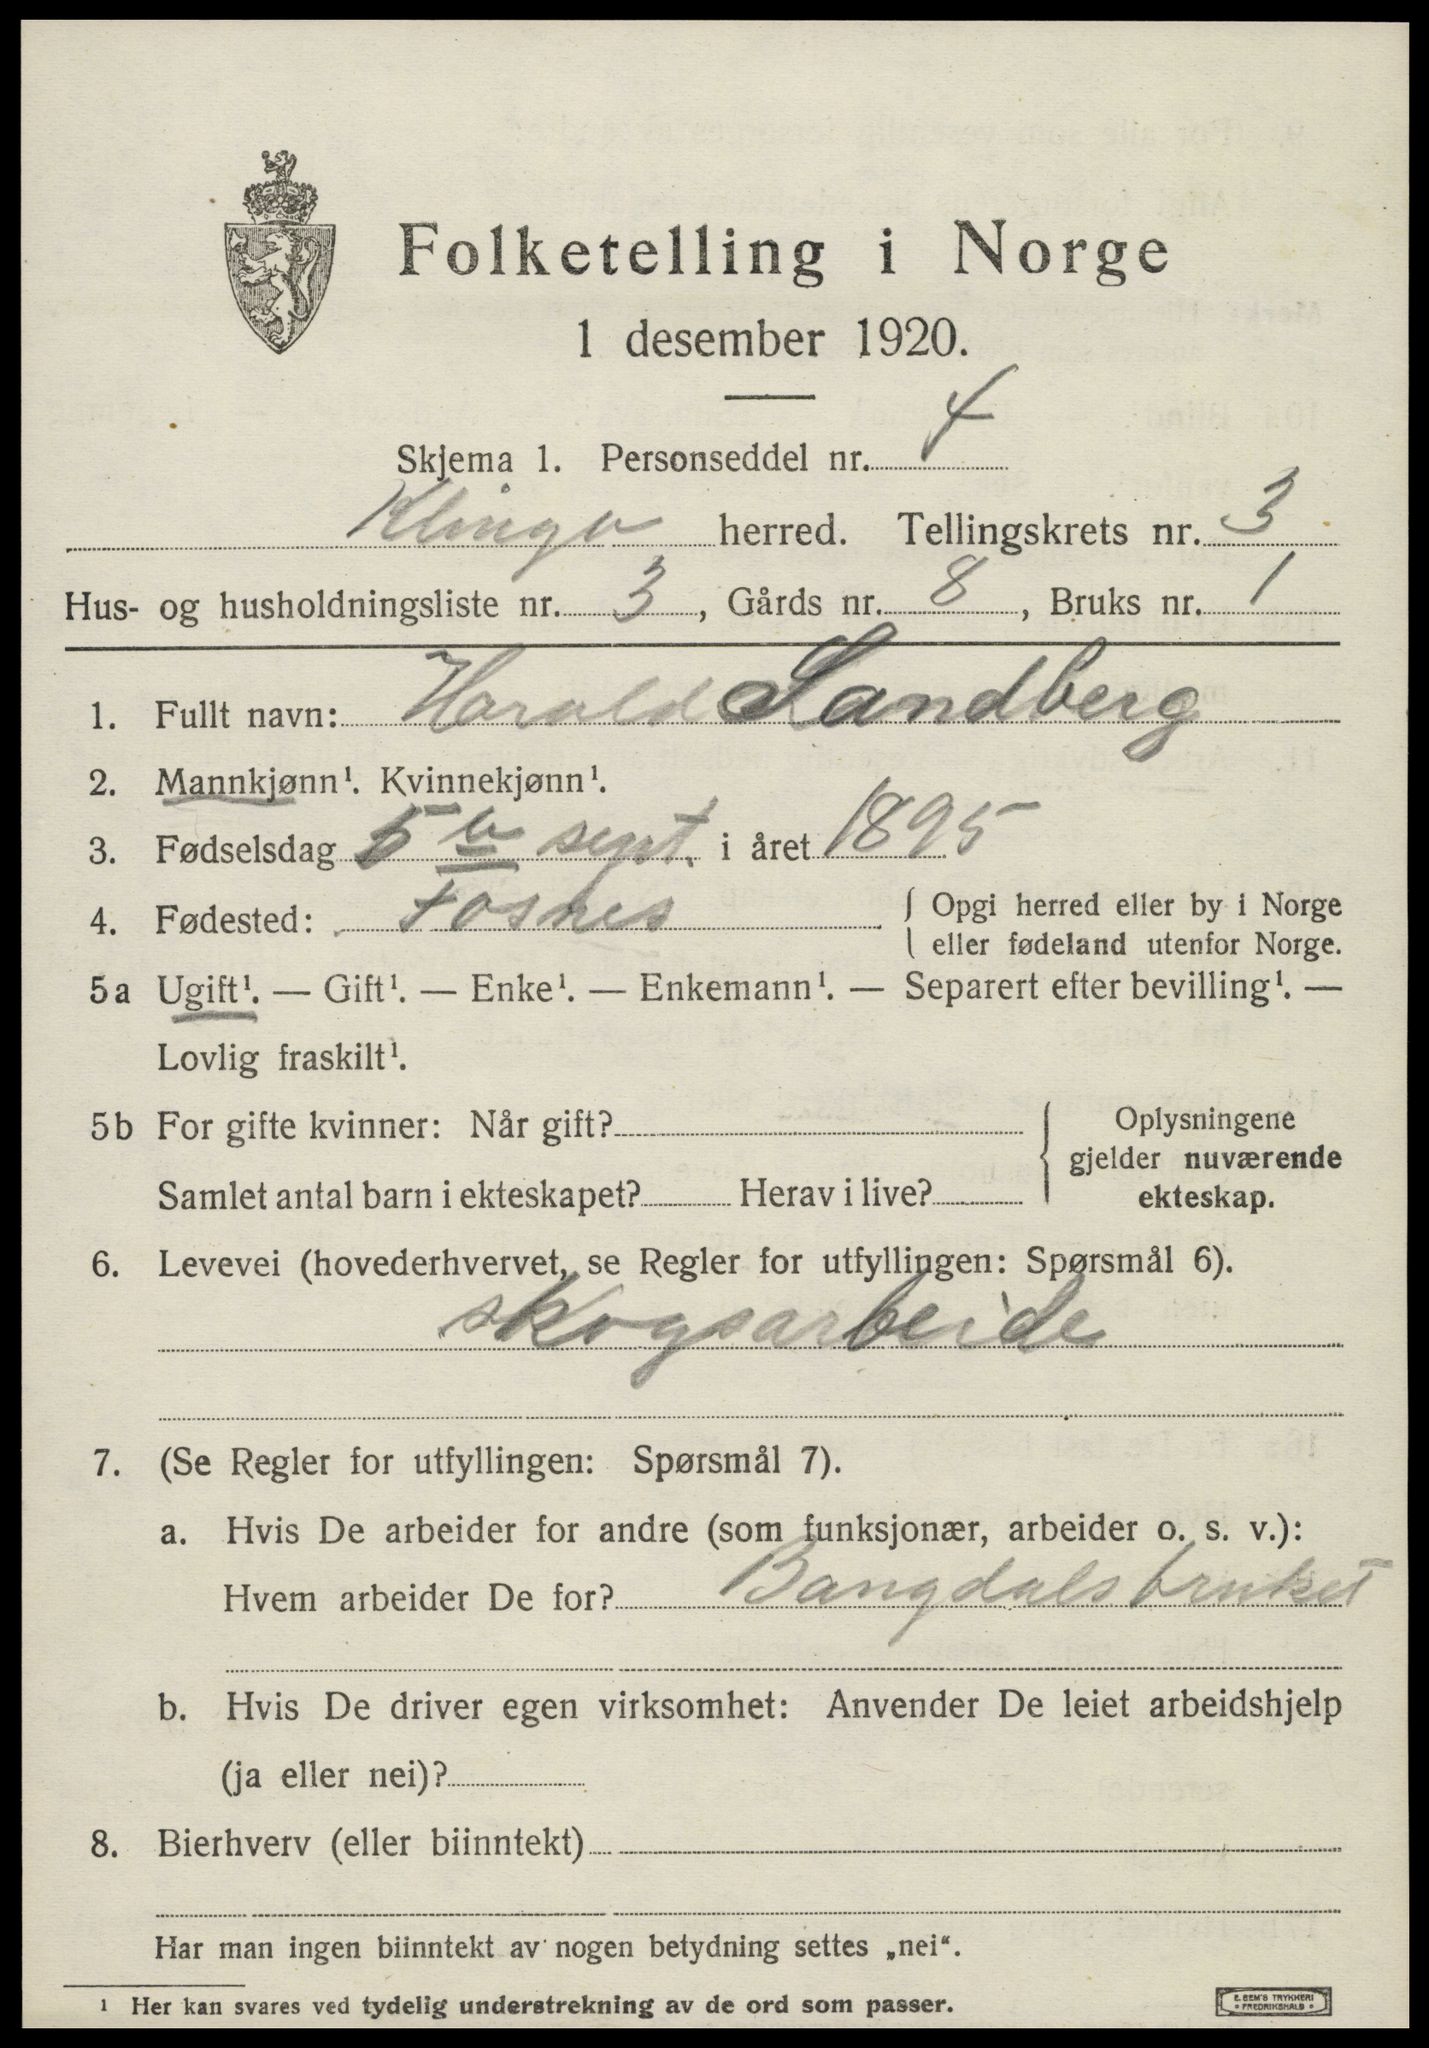 Folketelling i Norge
1 desember 1920.
Skjema 1. Personseddel nr. 4
Klinga herred. Tellingskrets nr. 3
Hus- og husholdningsliste nr. 3, Gårds nr. 8, Bruks nr. 1
1. Fullt navn: Harald Sandberg
2. Mannkjønn¹. Kvinnekjønn¹.
3. Fødselsdag 5te sept. i året 1895
4. Fødested: Fosnes { Opgi herred eller by i Norge
eller fødeland utenfor Norge.
5a Ugift¹. — Gift¹. — Enke¹. — Enkemann¹. — Separert efter bevilling¹. —
Lovlig fraskilt¹.
5b For gifte kvinner: Når gift? { Oplysningene
gjelder nuværende
Samlet antal barn i ekteskapet? Herav i live? ekteskap.
6. Levevei (hovederhvervet, se Regler for utfyllingen: Spørsmål 6).
skogsarbeide
7. (Se Regler for utfyllingen: Spørsmål 7).
a. Hvis De arbeider for andre (som funksjonær, arbeider o. s. v.):
Hvem arbeider De for? Bangdalsbruket
b. Hvis De driver egen virksomhet: Anvender De leiet arbeidshjelp
(ja eller nei)?
8. Bierhverv (eller biinntekt)
Har man ingen biinntekt av nogen betydning settes „nei“.
¹ Her kan svares ved tydelig understrekning av de ord som passer.
E. SEM'S TRYKKERI
• FREDRIKSHALD •